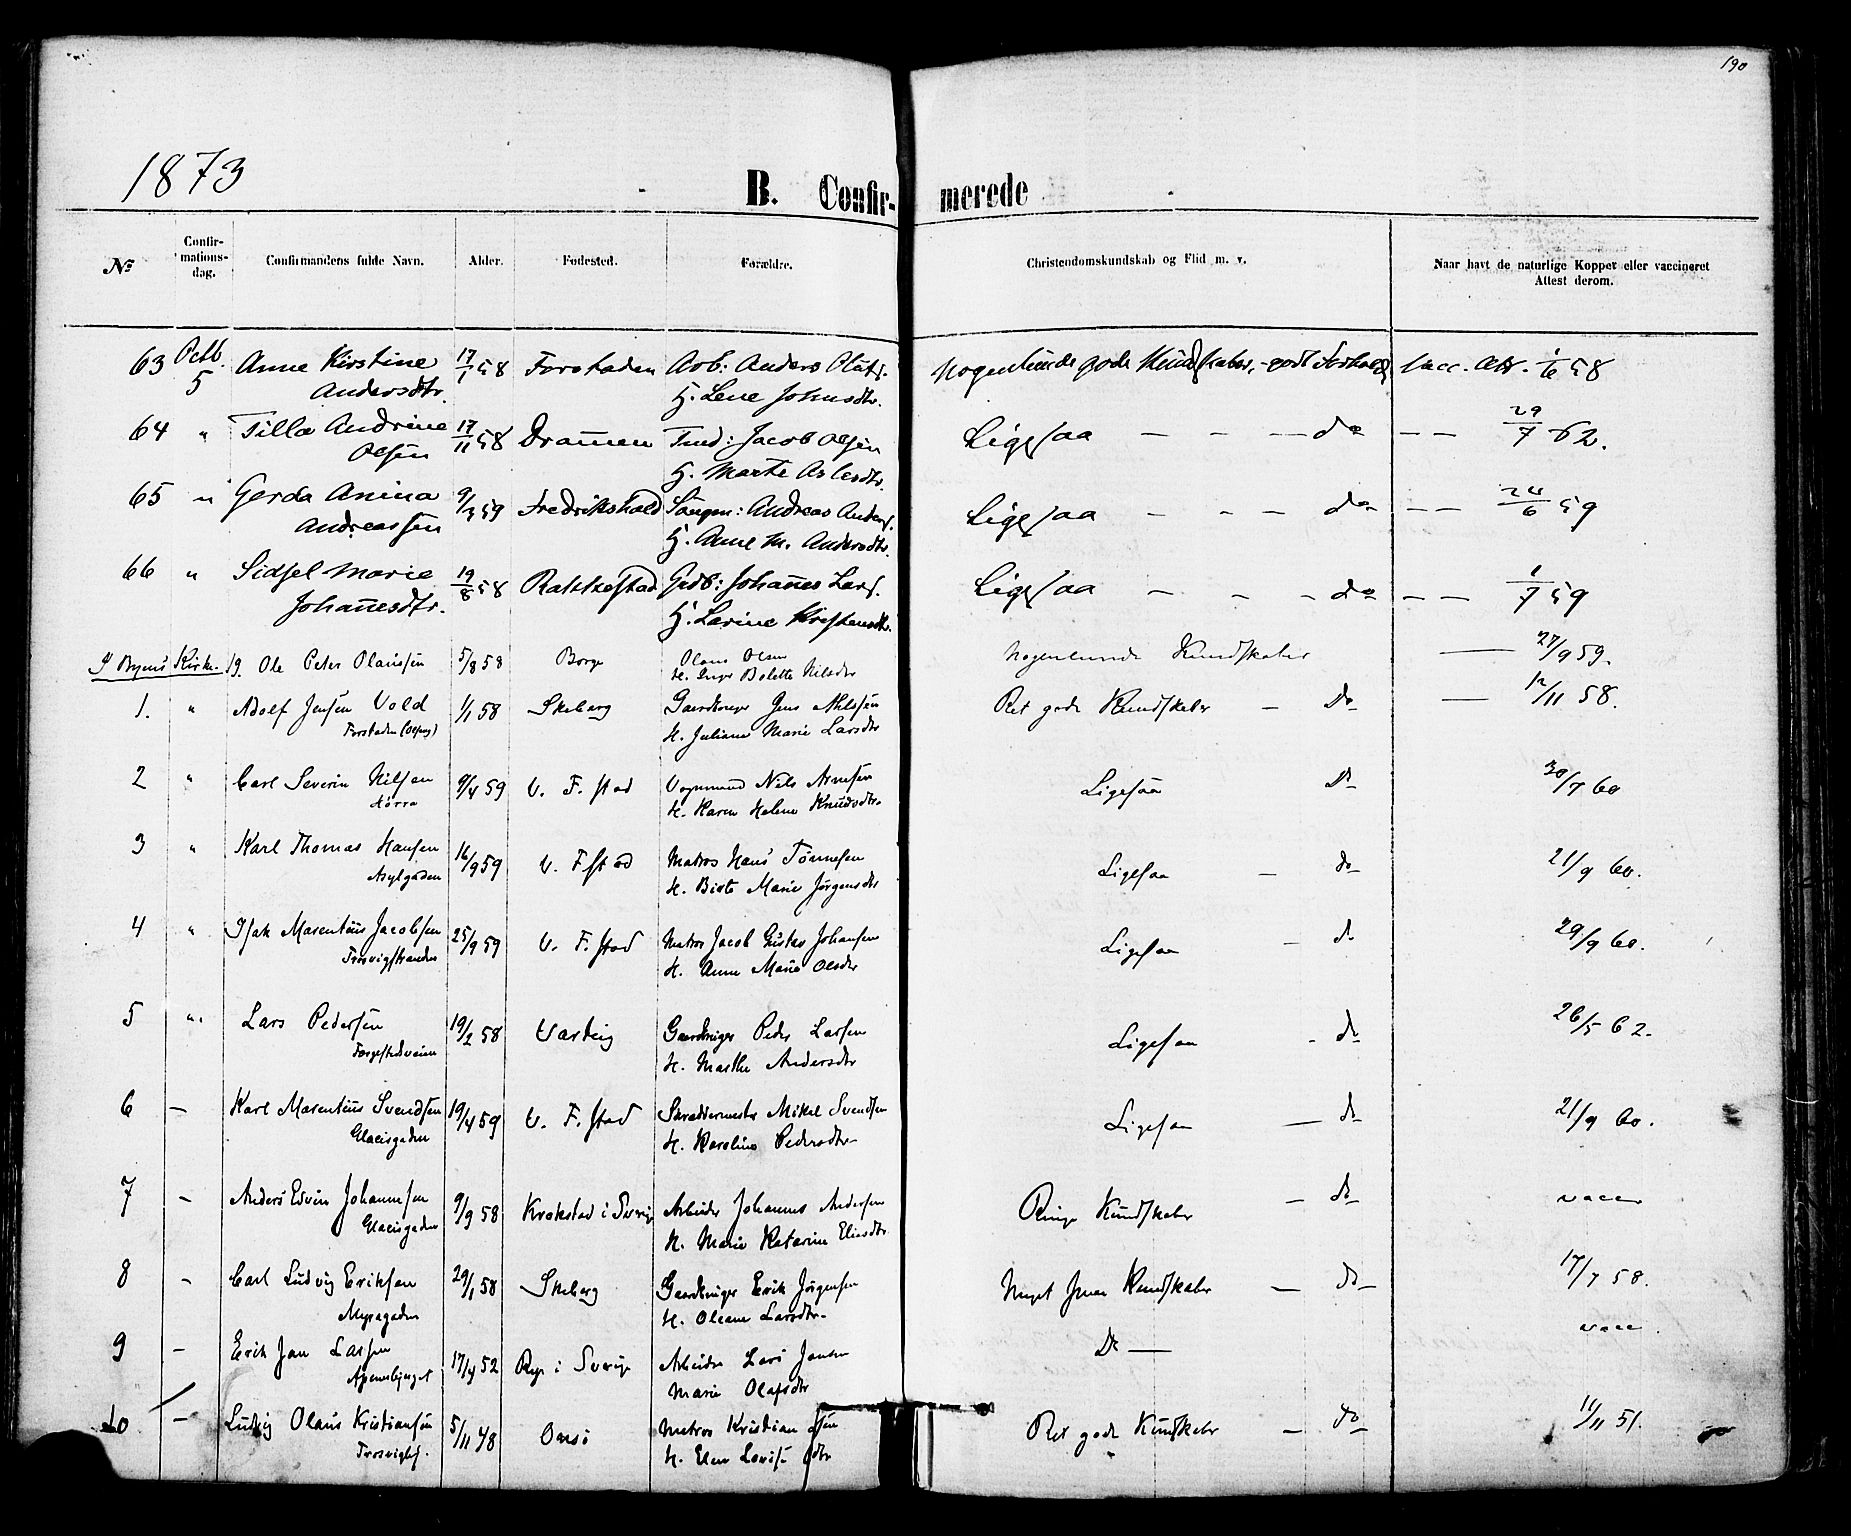 190
1873
B. Confir- merede
No
Confir-
mations-
dag.
Confirmandens fulde Navn.
Alder.
Fødested.
Forældre.
Christendomskundskab og Flid m. v.
Naar havt de naturlige Kopper eller vaccineret
Attest derom.
63 Octb. 5 Anne Kirstine 17/1 58 Forstaden Arb: Anders Olafs. Nogenlunde gode Kundskaber, - godt Forhold vacc. Att. 1/6 58
Andersdtr. H. Lene Johnsdtr.
64 " Tilla Andrine 17/11 58 Drammen Tmd: Jacob Olsen Ligesaa — — — do — — 29/7 62.
Olsen H. Marte Aslesdtr.
65 " Gerda Anina 9/3 59 Fredrikshald Andreas Anders. Ligesaa — — — do — — 24/6 59
Andreassen H. Anne M. Andersdtr.
66 " Sidsel Marie 19/8 58 Rakkestad Grdb: Johannes Lars. Ligesaa — — — do — — 1/7 59
Johannesdtr. H. Larine Kristensdtr.
I Byens Kirke. 19. Ole Peter Olaussen 5/8 58 Borge Olaus Olsen Nogenlunde Kundskaber — 27/9 59.
H. Inger Bolette Nilsdtr
1. " Adolf Jensen Vold 1/1 58 Skeberg Gaardbruger Jens Nilssen Ret gode Kundskaber — Do — 12/11 58.
Forstaden H. Juliane Marie Larsdtr
2 " Carl Severin Nilsen 9/4 59 V. F. stad Vognmand Nils Arnesen Ligesaa Do 30/7 60
H. Karen Helene Knudsdtr.
3 " Karl Thomas Hansen 16/9 59 V. Fstad Matros Hans Tønnesen Ligesaa — do 21/9 60.
Asylgaden H. Birte Marie Jørgensdtr
4 " Isak Marentius Jacobsen 25/9 59 V. F. stad Matros Jacob Gustav Johansen Ligesaa — do 29/9 60.
Trosvigstranden H. Anne Marie Olsdtr
5 " Lars Pedersen 19/2 58 Varteig Gaardbruger Peder Larsen Ligesaa - do 26/5 62.
Færgestedsveien H. Marthe Andersdtr
6 — Karl Marentius Svendsen 19/4 59 V. F. stad Skræddermester Mikal Svendsen Ligesaa — do 21/9 60.
Glacisgaden H. Karoline Pedersdtr
7 - Anders Edvin Johannesen 9/9 58 Krokstad i Sverige Arbeider Johannes Andersen Ringe Kundskaber — do vacc
Glacisgaden H. Marie Katarine Eliasdtr
8 - Carl Ludvig Eriksen 29/1 58 Skeberg Gaardbruger Erik Jørgensen Meget smaa Kundskaber — do 17/7 58.
Myragaden H. Oleane Larsdtr
9 — Erik Jan Larsen 17/4 52 i Sverige Arbeider Lars Jansen Do — vacc.
Apenesbjerget Marie Olafsdtr
10 — Ludvig Olaus Kristiansen 5/11 48 Onsø Matros Kristian Ret gode Kundskaber — do 11/11 51.
H. Elen Lovise